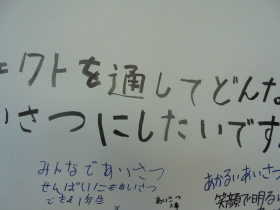 ェクトを通してどんな
いさつにしたいです
みんなであいさつ
せんぱいにもあいさつ
できる1年生
あかるいあいさつ
笑顔で明る